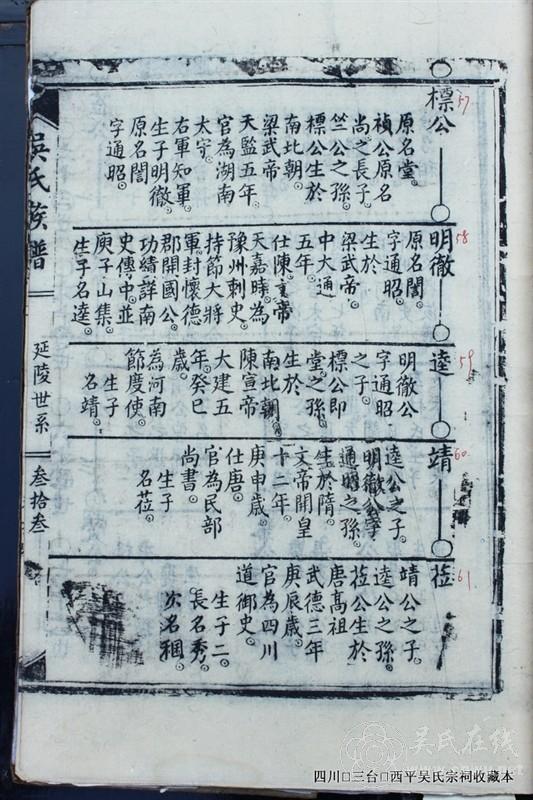 標公
57
原名堂。
禎公原名
尚之長子。
竺公之孫。
標公生於
南北朝。
梁武帝
天監五年。
官為湖南
太守。
右軍知軍。
生子明徹。
原名誾。
字通昭。
明徹
58
原名誾。
字通昭。
生於
梁武帝。
中大通
五年。
仕陳文帝
天嘉時。為
豫州刺史。
持節大將
軍封懷德
郡開國公。
功績詳南
史傳中。並
庾子山集。
生子名逵。
逵
59
明徹公
字通昭
之子。
標公即
堂之孫。
生於
南北朝。
陳宣帝
大建五
年。癸巳
歲。
為河南
節度使。
生子
名靖。
靖
60
逵公之子。
明徹公字
通昭之孫。
生於隋。
文帝開皇
十二年。
庚申歲。
仕唐。
官為民部
尚書。
生子
名莅。
莅
61
靖公之子。
逵公之孫。
莅公生於
唐高祖
武德三年
庚辰歲。
官為四川
道御史。
生子二。
長名秀。
次名稛。
吳氏族譜
延陵世系
叁拾叁
吴氏在线
www.cnwu.net
四川□三台□西平吴氏宗祠收藏本